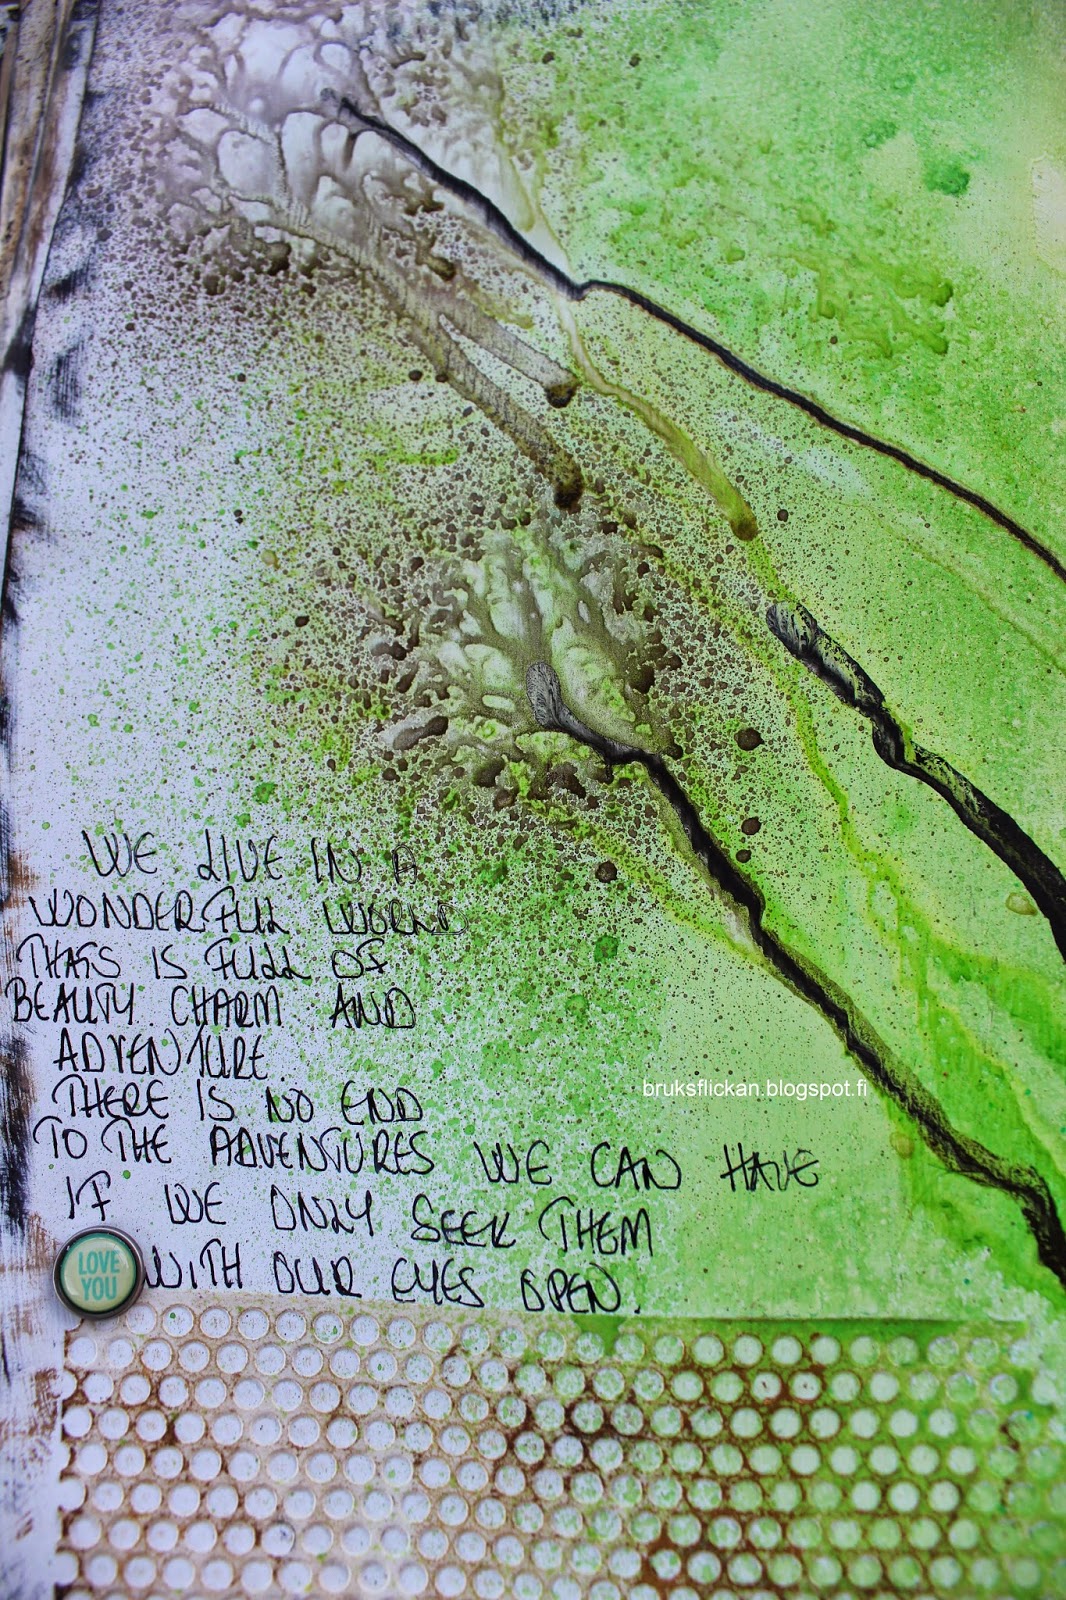 WE LIVE IN A
WONDERFUL WORLD
THATS IS FULL OF
BEAUTY. CHARM AND
ADVENTURE.
THERE IS NO END
TO THE ADVENTURES WE CAN HAVE
IF WE ONLY SEEK THEM
WITH OUR EYES OPEN.
LOVE
YOU
bruksflickan.blogspot.fi